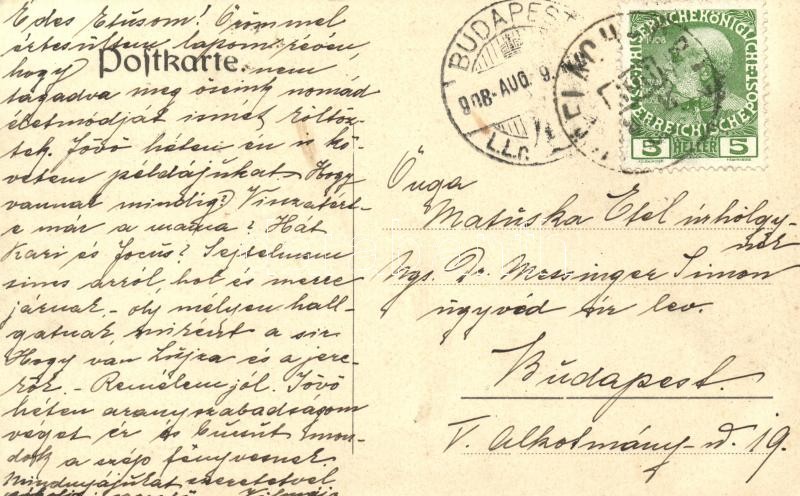 Édes Etusom! Örömmel
értesültem lapom révén
hogy nem
Postkarte.
tagadva meg ösemy nomád
életmódját ismét költöz-
tek. Jövő héten én is kö-
vetem példájukat. Hogy
vannak mindig? Visszatért-
e már a mama? Hát
Kari és Jocus? Sejtelmem
sincs arról, hol és merre
járnak, oly mélyen hall-
gatnak, miként a sir
Hogy van Lujza és a
Remélem jól. Jövő
héten aranyszabadságom
véget ér és búcsút mon-
dok a szép fenyvesnek
Mindnyájukat szeretettel
BUDAPEST
908-AUG. 9.
KAISERLICHE KÖNIGLICHE
ÖSTERREICHISCHE POST
1908
5 HELLER 5
Önga
Matuska Etel úrhölgy-
nek
Ngs. Dr. Messinger Simon
ügyvéd úr lev.
Budapest.
V. Alkotmány-u. 19.